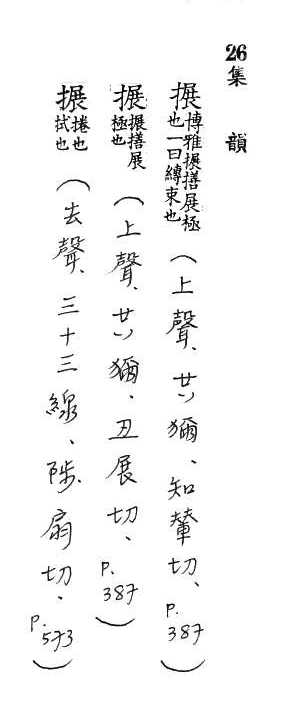 26 集韻
搌 博雅搌撍展極也一曰縛束也(上聲、廿八獮、知輦切、P.387)
搌 搌撍展極也(上聲、廿八獮、丑展切、P.387)
搌 捲也拭也(去聲、三十三線、陟扇切、P.573)